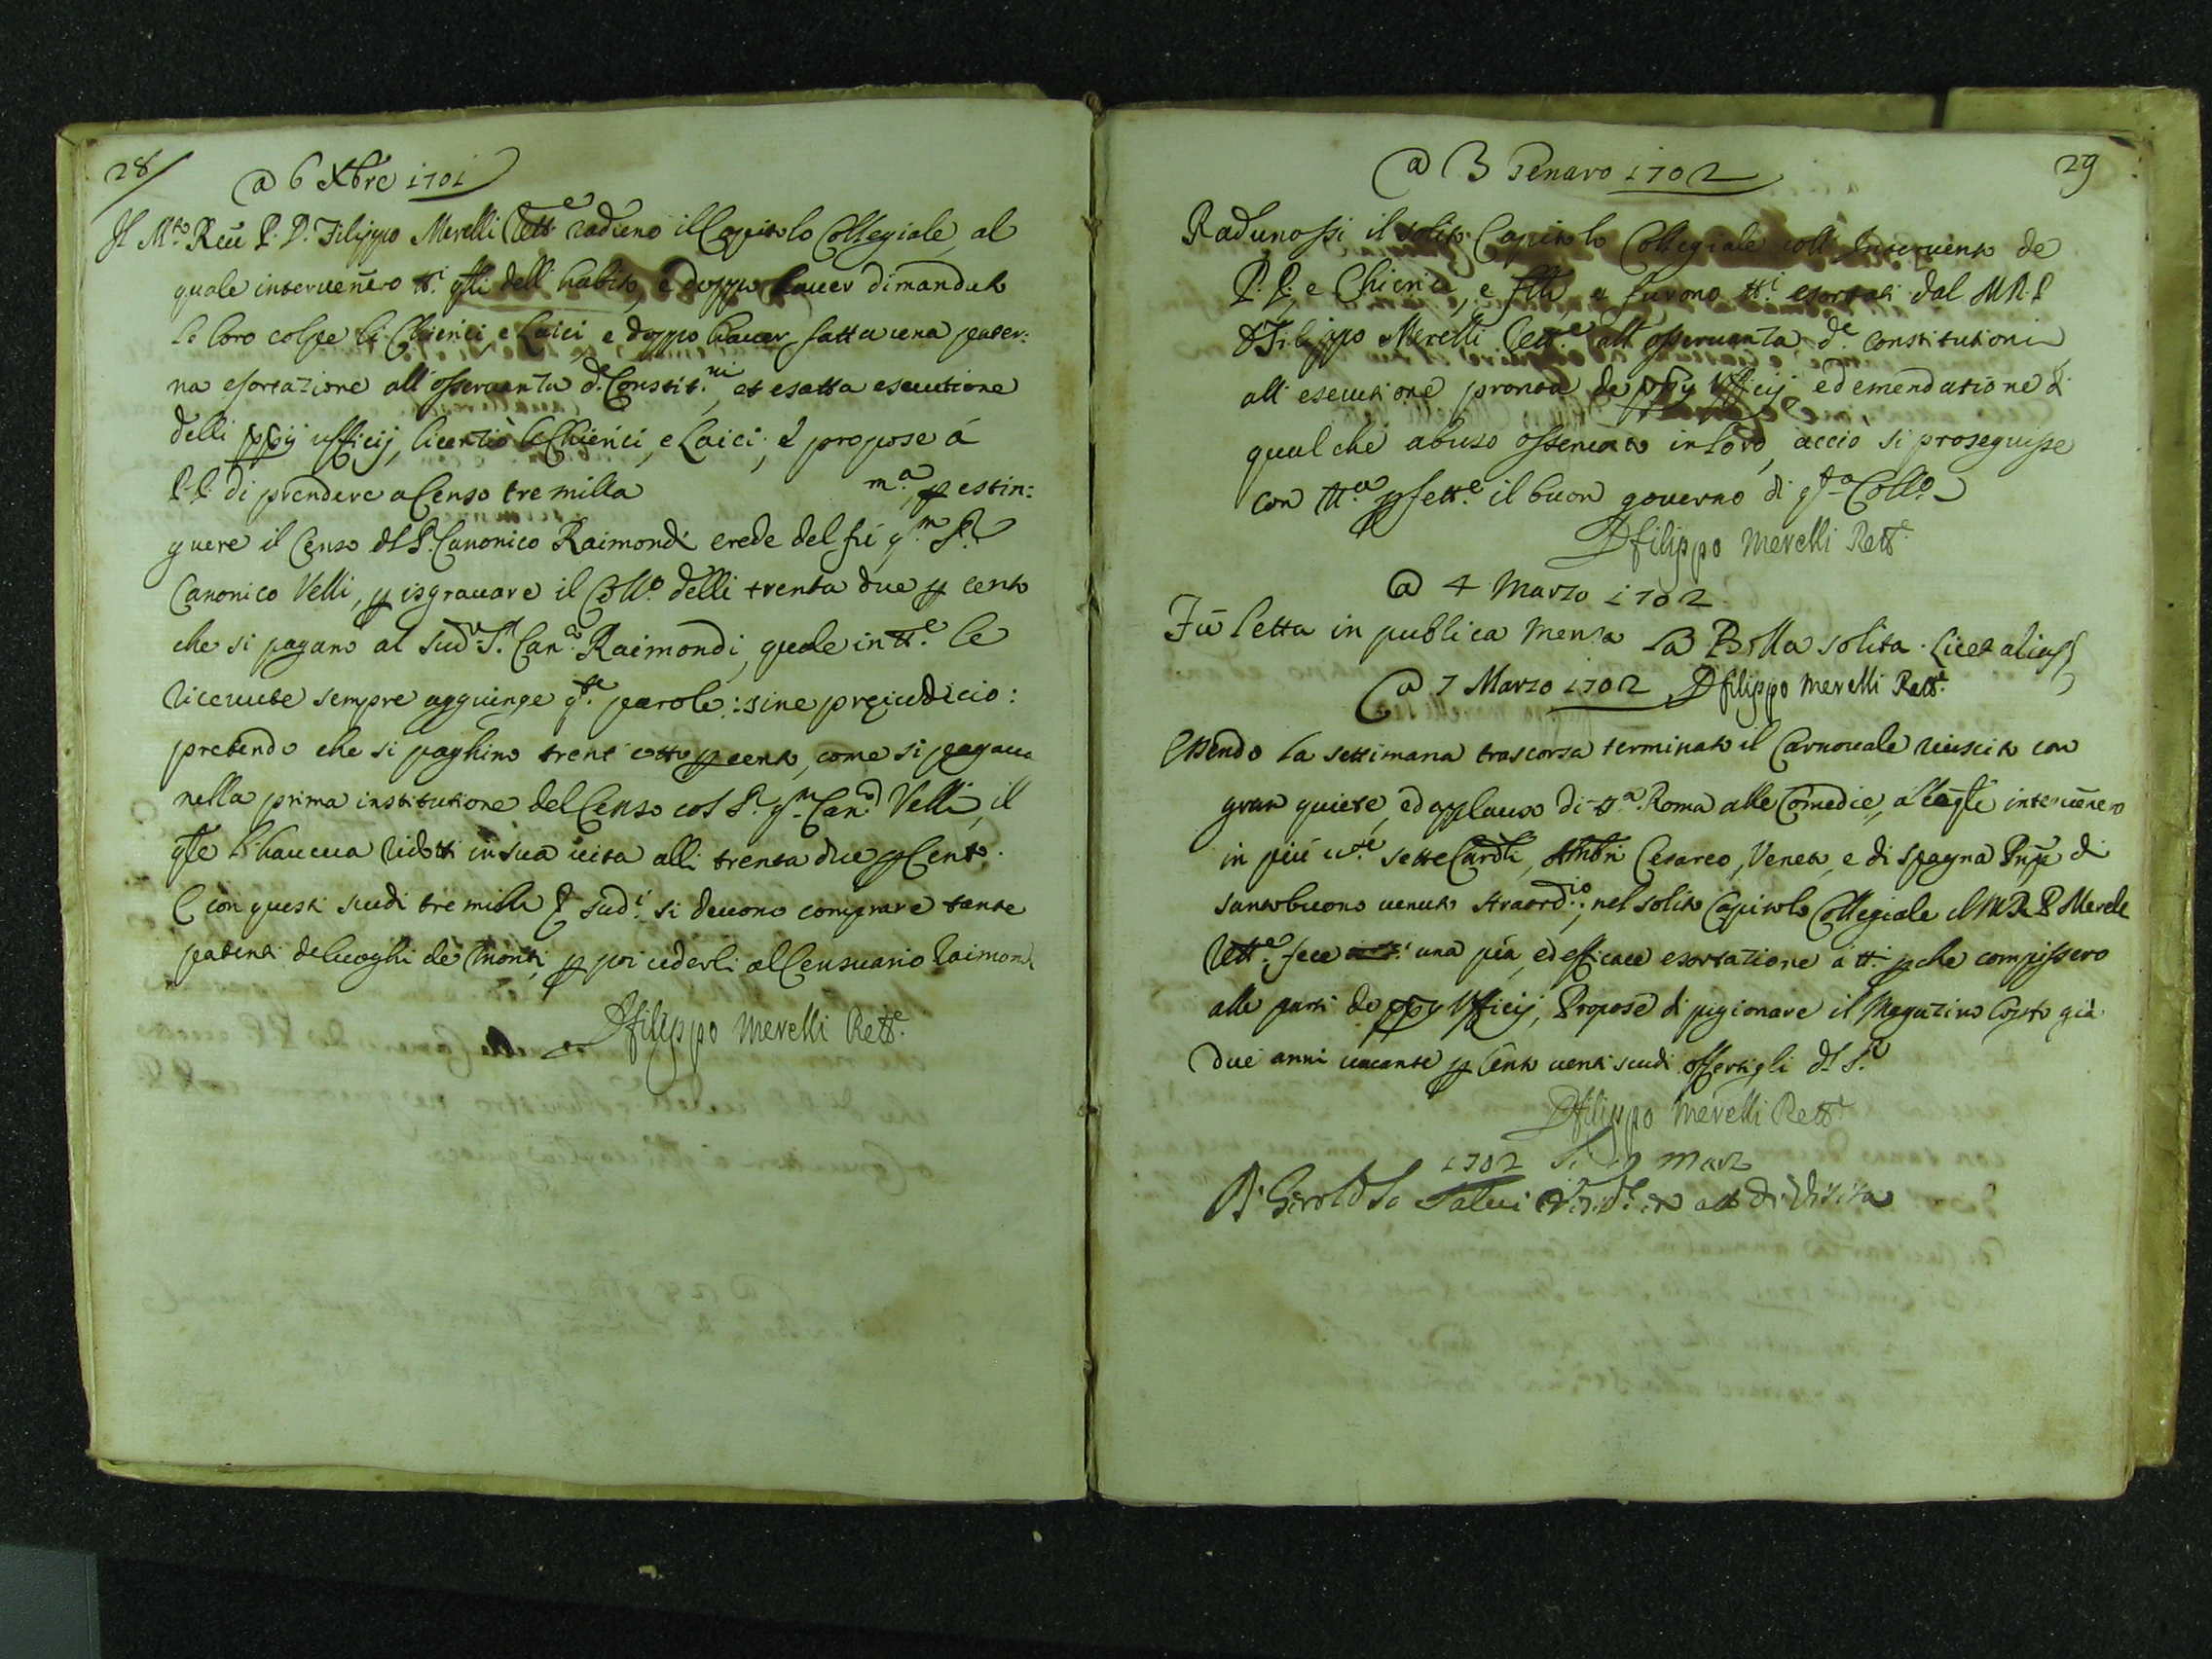 28
@ 6 Xbre 1701
Il M.to Reu P. D. Filippo Merelli Rett.e radunò il Capitolo Collegiale, al
quale interuenero tt.i qlli dell habito, e doppo hauer dimandato
le loro colpe li Chierici, e Laici e doppo hauer fatta una pater:
na esortazione all'osseruanza d.e Constit.ni, et esatta esecutione
delli ppij ufficij, licenziò li Chierici, e Laici; e propose á
P.P. di prendere a Censo tre milla m.a p estin:
guere il Censo dl S. Canonico Raimondi erede del fú q.m S.r
Canonico Velli, p isgrauare il Coll.o delli trenta due p cento
che si pagano al sud.o S.r Can.co Raimondi, quale in tt.e le
riceuute sempre aggiunge q.te parole: sine preiudicio:
pretendo che si paghino trent'otto p cento, come si pagaua
nella prima institutione del Censo col S.r q.m Can.co Velli, il
qle l'haueua ridotti in sua uita alli trenta due p Cento.
E con questi scudi tre milla sud.i si deuono comprare tante
patenti de luoghi de Monti, p poi cederli al Censuario Raimondi
D filippo Merelli Rett.e
29
@ 3 Genaro 1702
Radunossi il solito Capitolo Collegiale coll' Interuento de
P.P. e Chierici, e flli, e furono tt.i esortati dal M.R.P.
D Filippo Merelli Rett.e all'osseruanza d.e Constitutioni
all'esecutione pronta de ppij Ufficij, ed emendatione di
qualche abuso osseruato in loro, acció si proseguisse
con tt.a pfett.e il buon gouerno di q.to Coll.o
D filippo Merelli Rett.e
@ 4 Marzo 1702
Fú letta in publica Mensa La Bolla solita. Licet alias
@ 7 Marzo 1702 D filippo Merelli Rett.e
Essendo la settimana trascorsa terminato il Carnouale riuscito con
gran quiete, ed applauso di tt.a Roma alle Comedie, alle qli interuenero
in piú u.te sette Cardli, Ambri Cesareo, Veneto, e di Spagna Pnpe di
Santobuono uenuto straord.io; nel solito Capitolo Collegiale il M.R.P. Merelli
Rett.e fece una pia, ed efficace esortatione á tt.i p che compissero
alle parti de ppij Ufficij, Propose di pigionare il Magazino Coperto giá
due anni uacante p Cento uenti scudi offertigli dl S.r
D filippo Merelli Rett.e
1702 li 9 Marz
D. Girol.o Salui in att di Visita